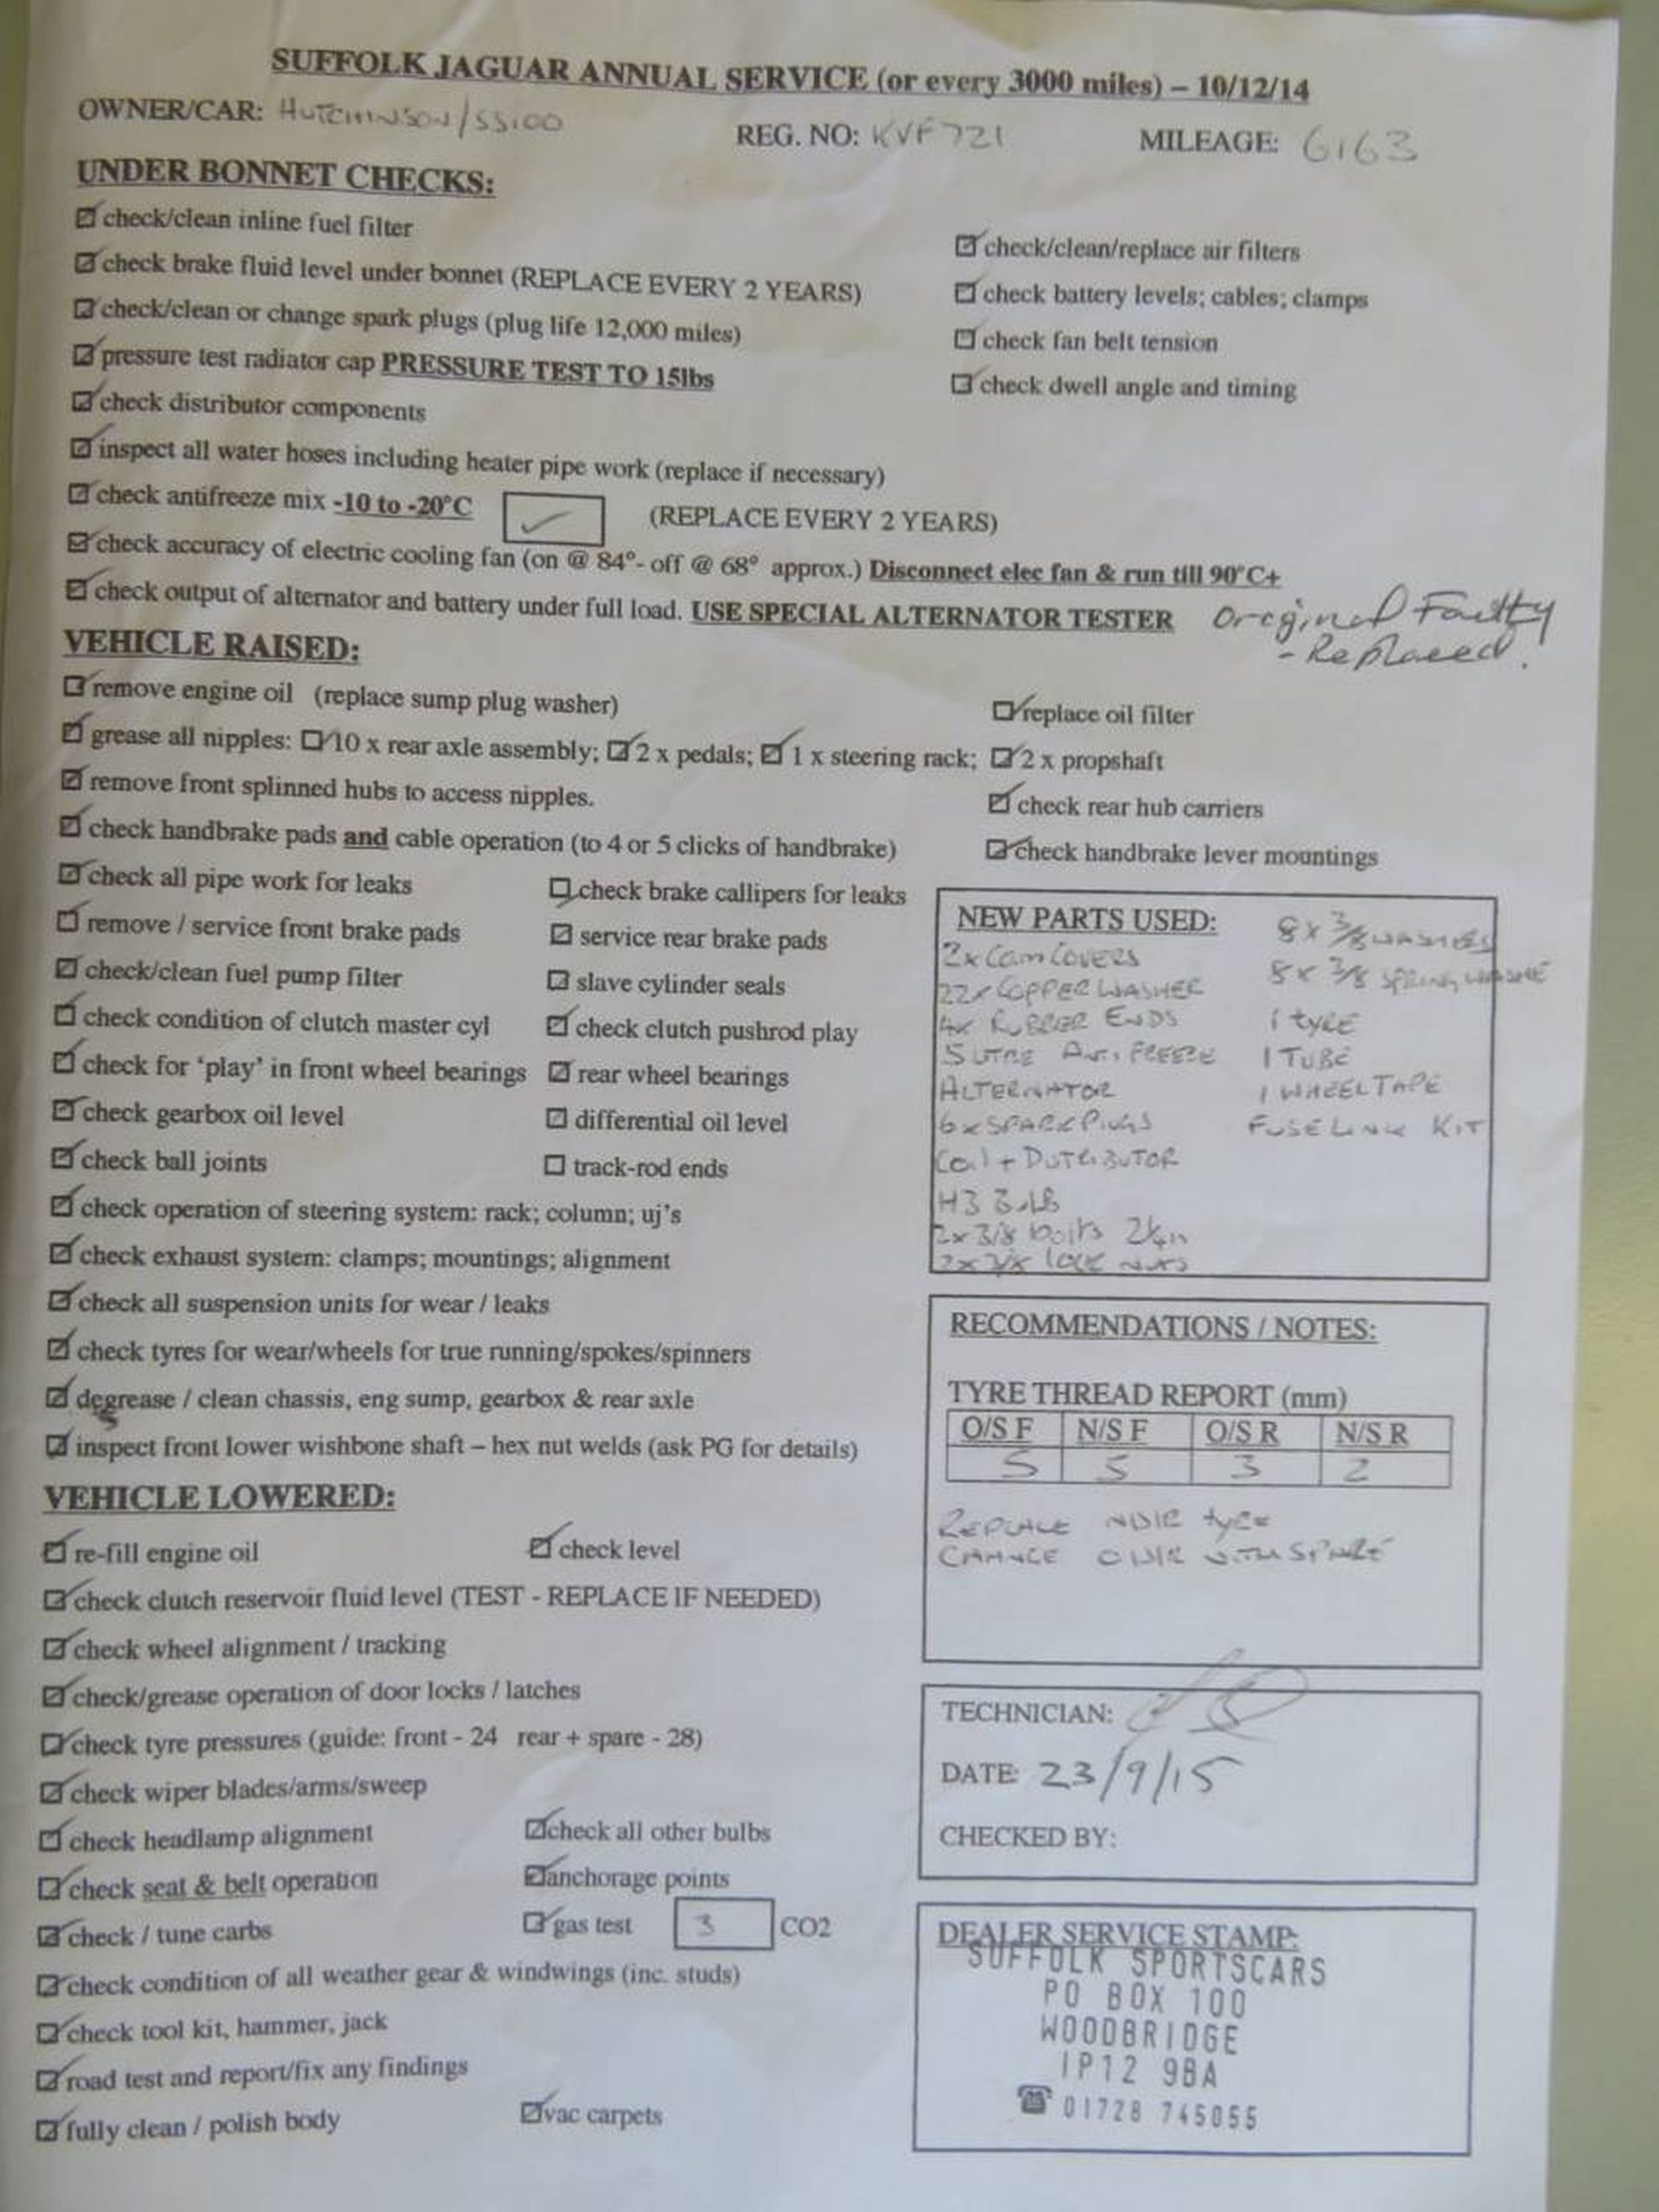 SUFFOLK JAGUAR ANNUAL SERVICE (or every 3000 miles) – 10/12/14
OWNER/CAR: HUTCHINSON/SS100 REG. NO: KVF 721 MILEAGE: 6163
UNDER BONNET CHECKS:
check/clean inline fuel filter
check/clean/replace air filters
check brake fluid level under bonnet (REPLACE EVERY 2 YEARS)
check battery levels; cables; clamps
check/clean or change spark plugs (plug life 12,000 miles)
check fan belt tension
pressure test radiator cap PRESSURE TEST TO 15lbs
check dwell angle and timing
check distributor components
inspect all water hoses including heater pipe work (replace if necessary)
check antifreeze mix -10 to -20°C (REPLACE EVERY 2 YEARS)
check accuracy of electric cooling fan (on @ 84°- off @ 68° approx.) Disconnect elec fan & run till 90°C+
check output of alternator and battery under full load. USE SPECIAL ALTERNATOR TESTER Original Faulty
- Replaced.
VEHICLE RAISED:
remove engine oil (replace sump plug washer) replace oil filter
grease all nipples: 10 x rear axle assembly; 2 x pedals; 1 x steering rack; 2 x propshaft
remove front splinned hubs to access nipples. check rear hub carriers
check handbrake pads and cable operation (to 4 or 5 clicks of handbrake) check handbrake lever mountings
check all pipe work for leaks check brake callipers for leaks
remove / service front brake pads service rear brake pads
check/clean fuel pump filter slave cylinder seals
check condition of clutch master cyl check clutch pushrod play
check for ‘play’ in front wheel bearings rear wheel bearings
check gearbox oil level differential oil level
check ball joints track-rod ends
check operation of steering system: rack; column; uj’s
check exhaust system: clamps; mountings; alignment
check all suspension units for wear / leaks
check tyres for wear/wheels for true running/spokes/spinners
degrease / clean chassis, eng sump, gearbox & rear axle
inspect front lower wishbone shaft – hex nut welds (ask PG for details)
NEW PARTS USED:
2x Cam COVERS
22x COPPER WASHER
4x RUBBER ENDS
5 LITRE ANTI FREEZE
ALTERNATOR
6 x SPARK PLUGS
Coil + DISTRIBUTOR
H3 BULB
2x 3/8 bolts 2¼in
2x 3/8 lock nuts
8x 3/8 WASHERS
8x 3/8 SPRING WASHE
1 tyRE
1 TUBE
1 WHEEL TAPE
FUSE LINK KIT
RECOMMENDATIONS / NOTES:
TYRE THREAD REPORT (mm)
O/S F N/S F O/S R N/S R
5 5 3 2
REPLACE N/S/R tyre
CHANGE O/S/R WITH SPARE
VEHICLE LOWERED:
re-fill engine oil check level
check clutch reservoir fluid level (TEST - REPLACE IF NEEDED)
check wheel alignment / tracking
check/grease operation of door locks / latches
check tyre pressures (guide: front - 24 rear + spare - 28)
check wiper blades/arms/sweep
check headlamp alignment check all other bulbs
check seat & belt operation anchorage points
check / tune carbs gas test 3 CO2
check condition of all weather gear & windwings (inc. studs)
check tool kit, hammer, jack
road test and report/fix any findings
fully clean / polish body vac carpets
TECHNICIAN:
DATE: 23/9/15
CHECKED BY:
DEALER SERVICE STAMP:
SUFFOLK SPORTSCARS
PO BOX 100
WOODBRIDGE
IP12 9BA
☎ 01728 745055